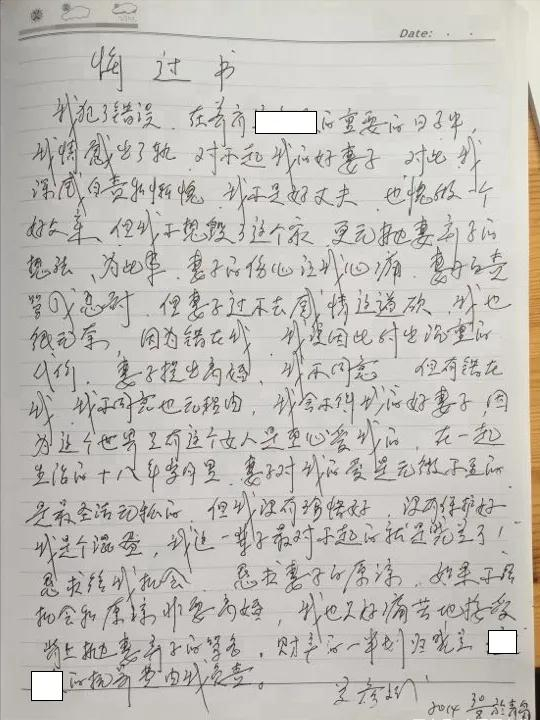 Date:
悔过书
我犯了错误，在养育的重要的日子中，
我情感出了轨，对不起我的好妻子，对此我
深感自责和惭愧，我不是好丈夫，也愧做一个
好父亲，但我不想毁了这个家，更无抛妻弃子的
想法，为此事，妻子的伤心让我心痛，妻子的责
骂我忍耐，但妻子过不去感情这道砍，我也
很无奈，因为错在我，我要因此付出沉重的
代价，妻子提出离婚，我不同意，但有错在
我，我不同意也无理由，我舍不得我的好妻子，因
为这个世界只有这个女人是真心爱我的，在一起
生活的十八年岁月里，妻子对我的爱是无微不至的
是最圣洁无私的，但我没有珍惜好，没有保护好
我是个混蛋，我这一辈子最对不起的就是兰了！
恳求给我机会，恳求妻子的原谅，如果不给
机会和原谅非要离婚，我也只好痛苦地接受
背上抛妻弃子的骂名，财产的一半划归兰
的抚养费由我负责。
2014